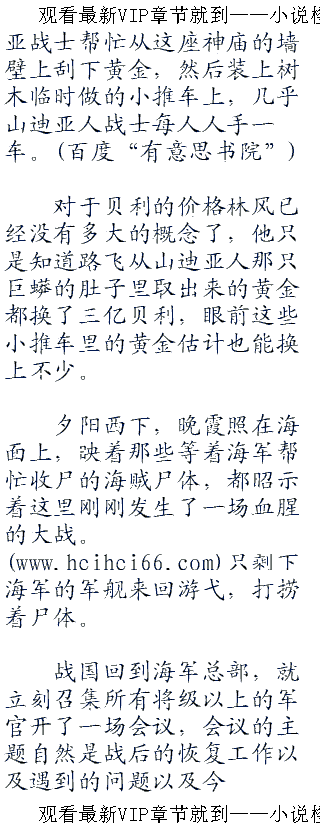 观看最新VIP章节就到——小说检
亚战士帮忙从这座神庙的墙
壁上刮下黄金，然后装上树
木临时做的小推车上，几乎
山迪亚人战士每人人手一
车。(百度“有意思书院”)
对于贝利的价格林风已
经没有多大的概念了，他只
是知道路飞从山迪亚人那只
巨蟒的肚子里取出来的黄金
都换了三亿贝利，眼前这些
小推车里的黄金估计也能换
上不少。
夕阳西下，晚霞照在海
面上，映着那些等着海军帮
忙收尸的海贼尸体，都昭示
着这里刚刚发生了一场血腥
的大战。
(www.hcihci66.com)只剩下
海军的军舰来回游弋，打捞
着尸体。
战国回到海军总部，就
立刻召集所有将级以上的军
官开了一场会议，会议的主
题自然是战后的恢复工作以
及遇到的问题以及今
观看最新VIP章节就到——小说检